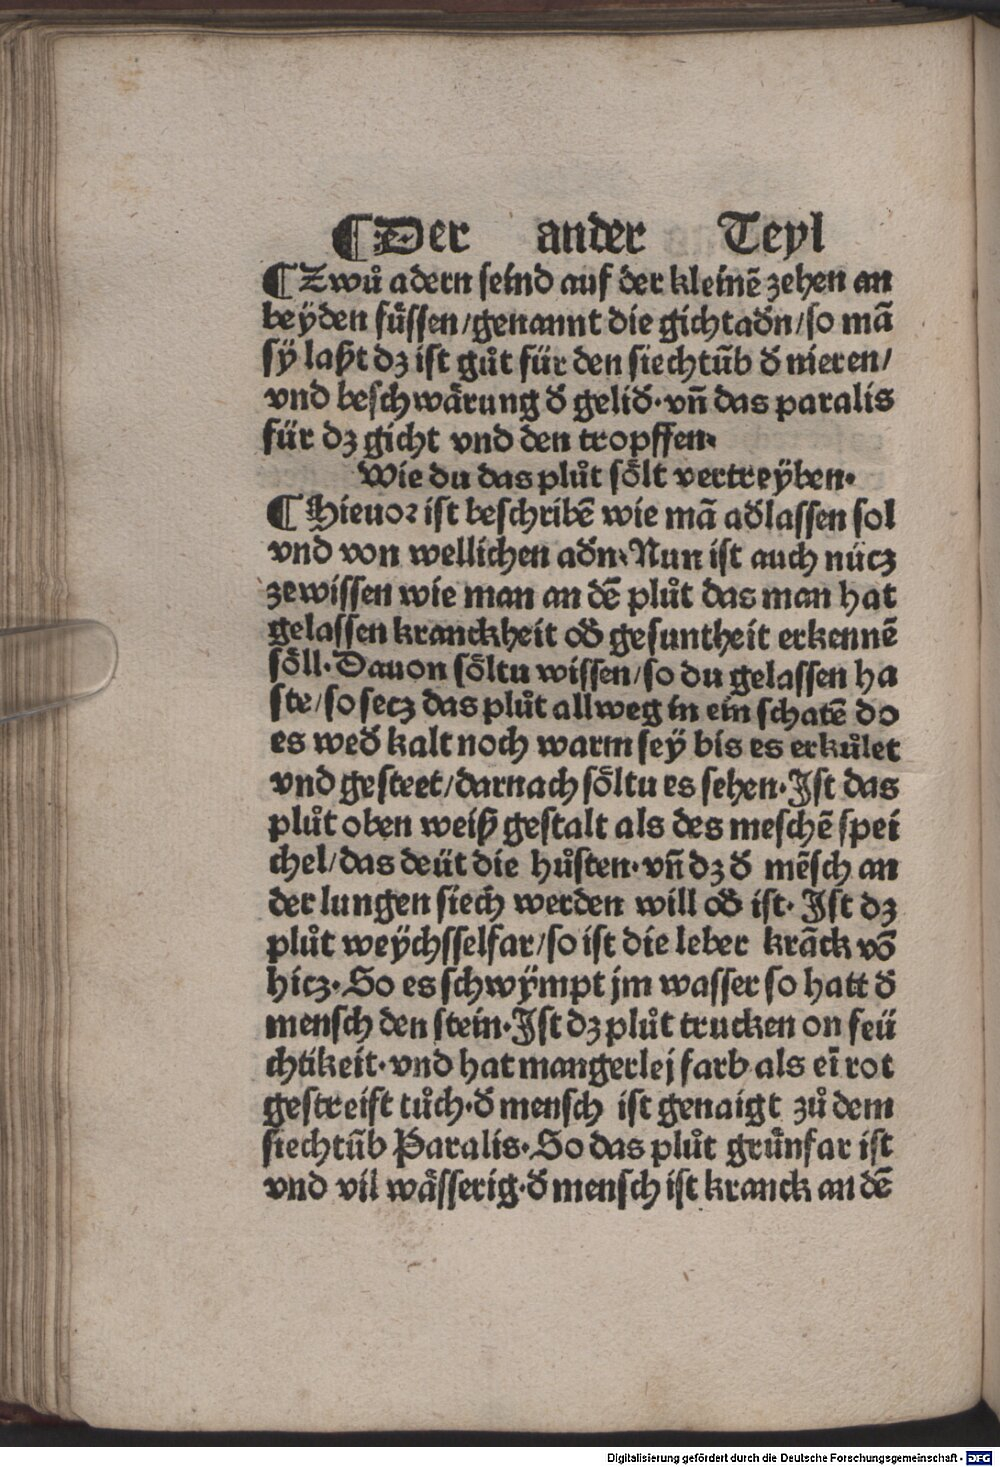 ¶ Der ander Teyl
¶ Zwů adern seind auf der kleinē zehen an
beÿden fuͤssen/genannt die gichtadn̄/so mā
sÿ laßt dz ist gůt für den siechtūb đ nieren/
vnd beschwaͤrung đ gelid̄·vn̄ das paralis
für dz gicht vnd den tropffen·
Wie du das plůt soͤlt vertreÿben·
¶ Hieuor ist beschribē wie mā ad̄lassen sol
vnd von wellichen adn̄·Nun ist auch nücz
zewissen wie man an dē plůt das man hat
gelassen kranckheit od̄ gesuntheit erkennē
soͤll·Dauon soͤltu wissen/so du gelassen ha
ste/so secz das plůt allweg in ein schatē do
es wed̄ kalt noch warm seÿ bis es erkůlet
vnd gesteet/darnach soͤltu es sehen·Ist das
plůt oben weiß gestalt als des meschē spei
chel/das deüt die hůsten·vn̄ dz đ mēsch an
der lungen siech werden will od̄ ist· Ist dz
plůt weÿchsselfar/so ist die leber krāck vō
hicz·So es schwÿmpt jm wasser so hatt đ
mensch den stein·Ist dz plůt trucken on feü
chtikeit·vnd hat mangerlej farb als eī rot
gestreift tůch·đ mensch ist genaigt zů dem
siechtūb Paralis·So das plůt gruͤnfar ist
vnd vil waͤsserig·đ mensch ist kranck an dē
Digitalisierung gefördert durch die Deutsche Forschungsgemeinschaft - DFG